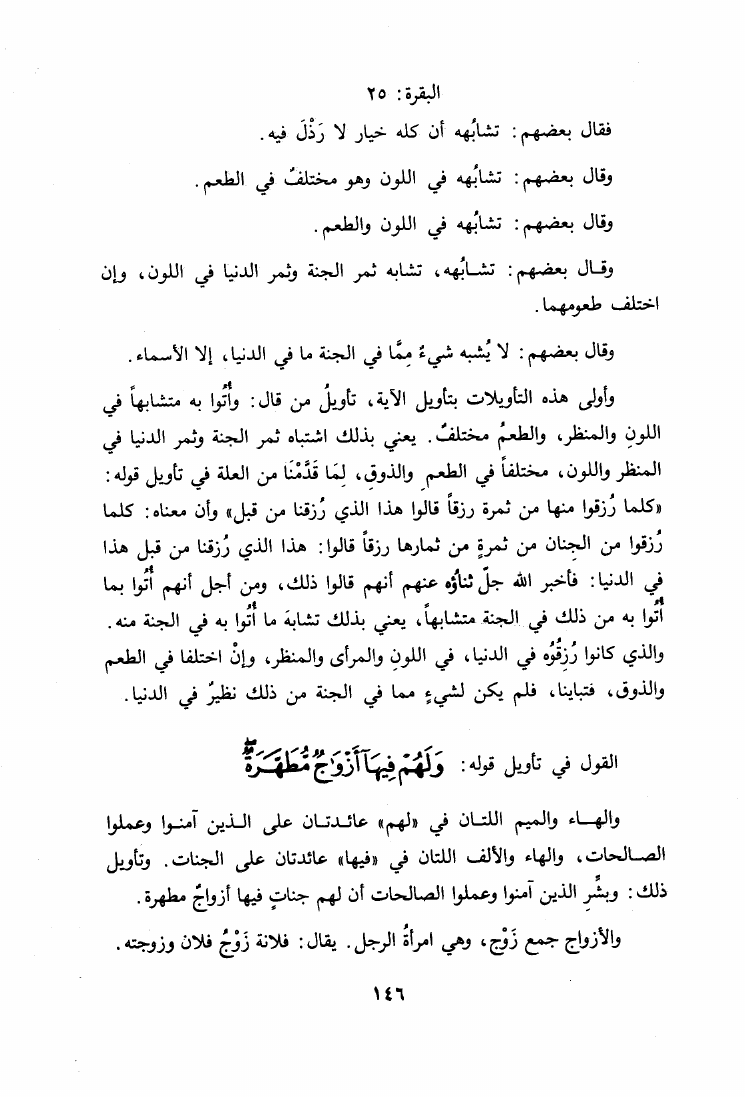 البقرة: ٢٥
فقال بعضهم: تشابُهه أن كله خيار لا رَذْلَ فيه.
وقال بعضهم: تشابُهه في اللون وهو مختلفٌ في الطعم.
وقال بعضهم: تشابُهه في اللون والطعم.
وقال بعضهم: تشابُهه، تشابه ثمر الجنة وثمر الدنيا في اللون، وإن
اختلف طعومهما.
وقال بعضهم: لا يُشبه شيءٌ مِمَّا في الجنة ما في الدنيا، إلا الأسماء.
وأولى هذه التأويلات بتأويل الآية، تأويلُ من قال: وأُتُوا به متشابهاً في
اللونِ والمنظر، والطعمُ مختلفٌ. يعني بذلك اشتباه ثمر الجنة وثمر الدنيا في
المنظر واللون، مختلفاً في الطعم والذوق، لِمَا قَدَّمْنَا من العلة في تأويل قوله:
«كلما رُزقوا منها من ثمرة رزقاً قالوا هذا الذي رُزقنا من قبل» وأن معناه: كلما
رُزقوا من الجِنان من ثمرةٍ من ثمارها رزقاً قالوا: هذا الذي رُزقنا من قبل هذا
في الدنيا: فأخبر الله جلّ ثناؤه عنهم أنهم قالوا ذلك، ومن أجل أنهم أُتُوا بما
أُتُوا به من ذلك في الجنة متشابهاً، يعني بذلك تشابهَ ما أُتُوا به في الجنة منه.
والذي كانوا رُزِقُوُه في الدنيا، في اللونِ والمرأى والمنظر، وإنْ اختلفا في الطعم
والذوق، فتباينا، فلم يكن لشيءٍ مما في الجنة من ذلك نظيرٌ في الدنيا.
القول في تأويل قوله: وَلَهُمْ فِيهَآ أَزْوَٰجٌ مُّطَهَّرَةٌۖ
والهاء والميم اللتان في «لهم» عائدتان على الذين آمنوا وعملوا
الصالحات، والهاء والألف اللتان في «فيها» عائدتان على الجنات. وتأويل
ذلك: وبشِّرِ الذين آمنوا وعملوا الصالحات أن لهم جناتٍ فيها أزواجٌ مطهرة.
والأزواج جمع زَوْج، وهي امرأةُ الرجل. يقال: فلانة زَوْجُ فلان وزوجته.
١٤٦